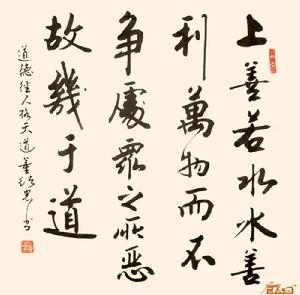 上善若水水善
利萬物而不
争處眾之所惡
故幾于道
道德经人格天道